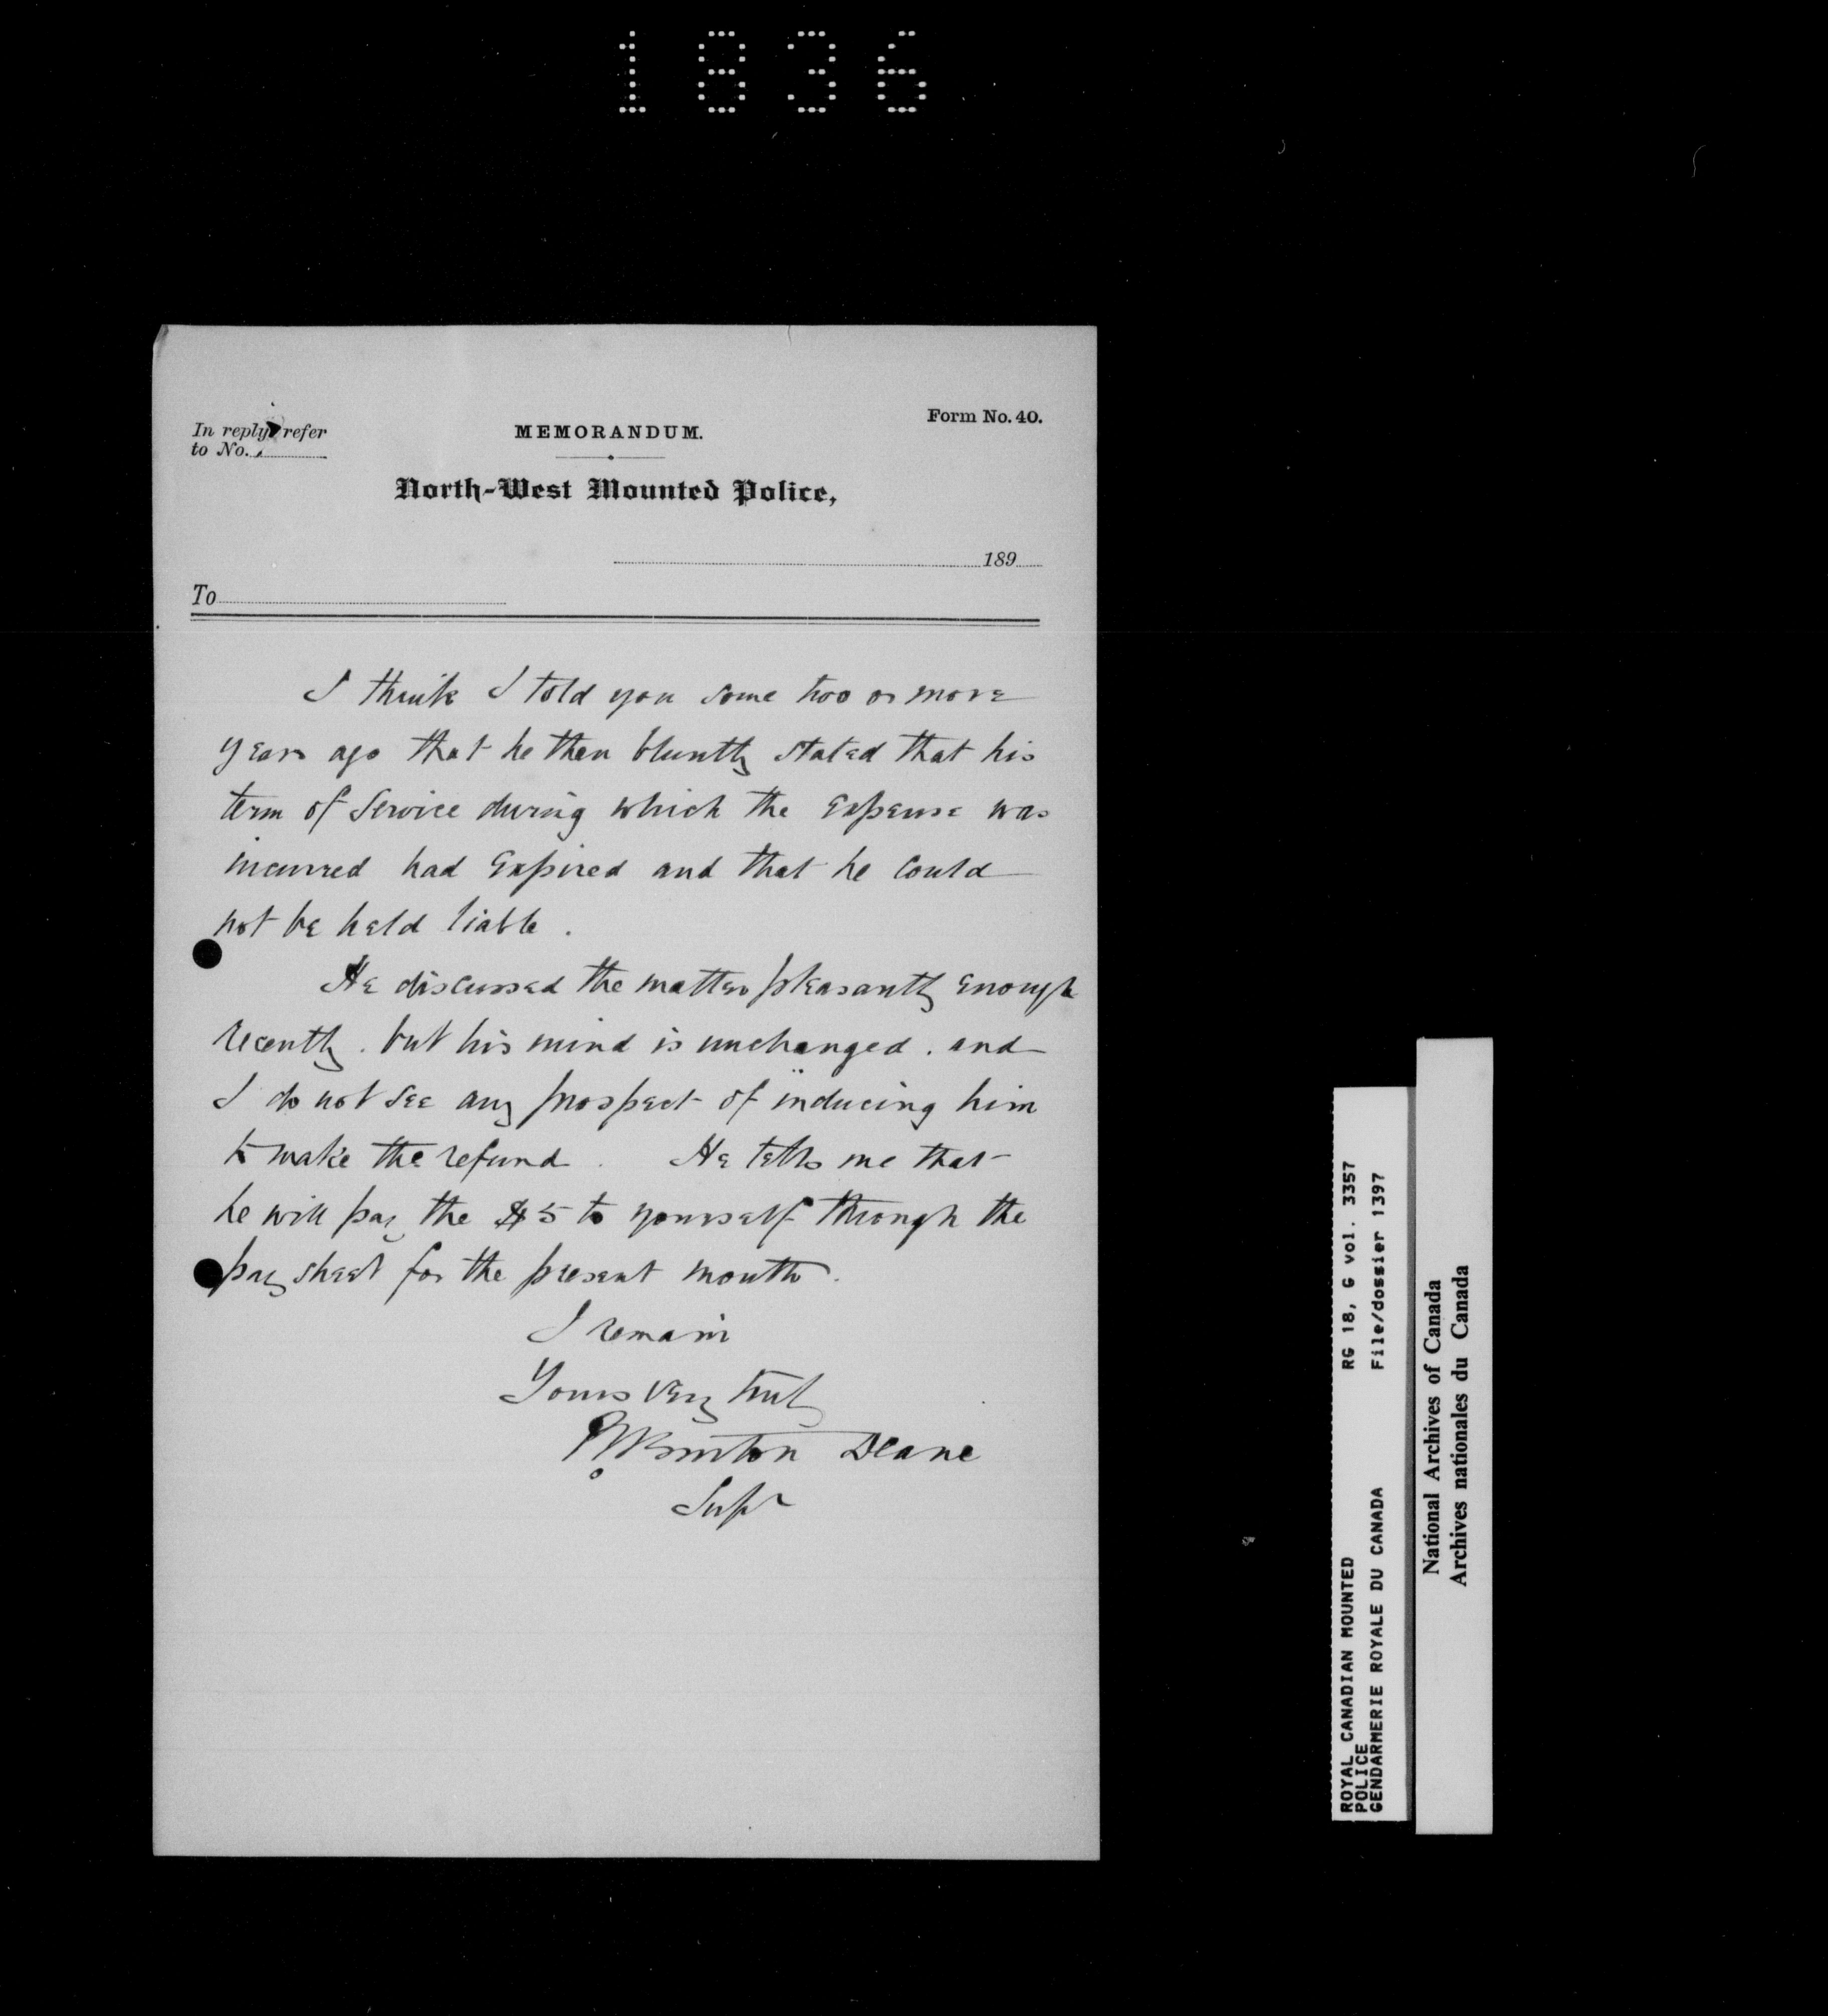 1836
Form No. 40.
In reply refer
to No.
MEMORANDUM.
North-West Mounted Police,
189
To
I think I told you some two or more
years ago that he then bluntly stated that his
term of service during which the expense was
incurred had expired and that he could
not be held liable.
He discussed the matter pleasantly enough
recently. but his mind is unchanged. and
I do not see any prospect of inducing him
to make the refund. He tells me that
he will pay the $5 to yourself through the
pay sheet for the present month.
I remain
Yours very truly
R Burton Deane
Supt
ROYAL CANADIAN MOUNTED RG 18, G vol. 3357
POLICE File/dossier 1397
GENDARMERIE ROYALE DU CANADA
National Archives of Canada
Archives nationales du Canada